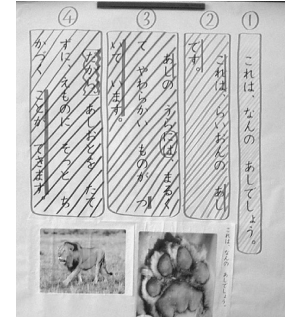 ①
これは、なんの　あしでしょう。
②
これは、らいおんの　あし
です。
③
あしの　うらには、まるく
て　やわらかい　ものが　つ
いて　います。
④
だから、あしおとを　たて
ずに、えものに　そっと　ち
かづく　ことが　できます。
これは、なんの　あしでしょう。